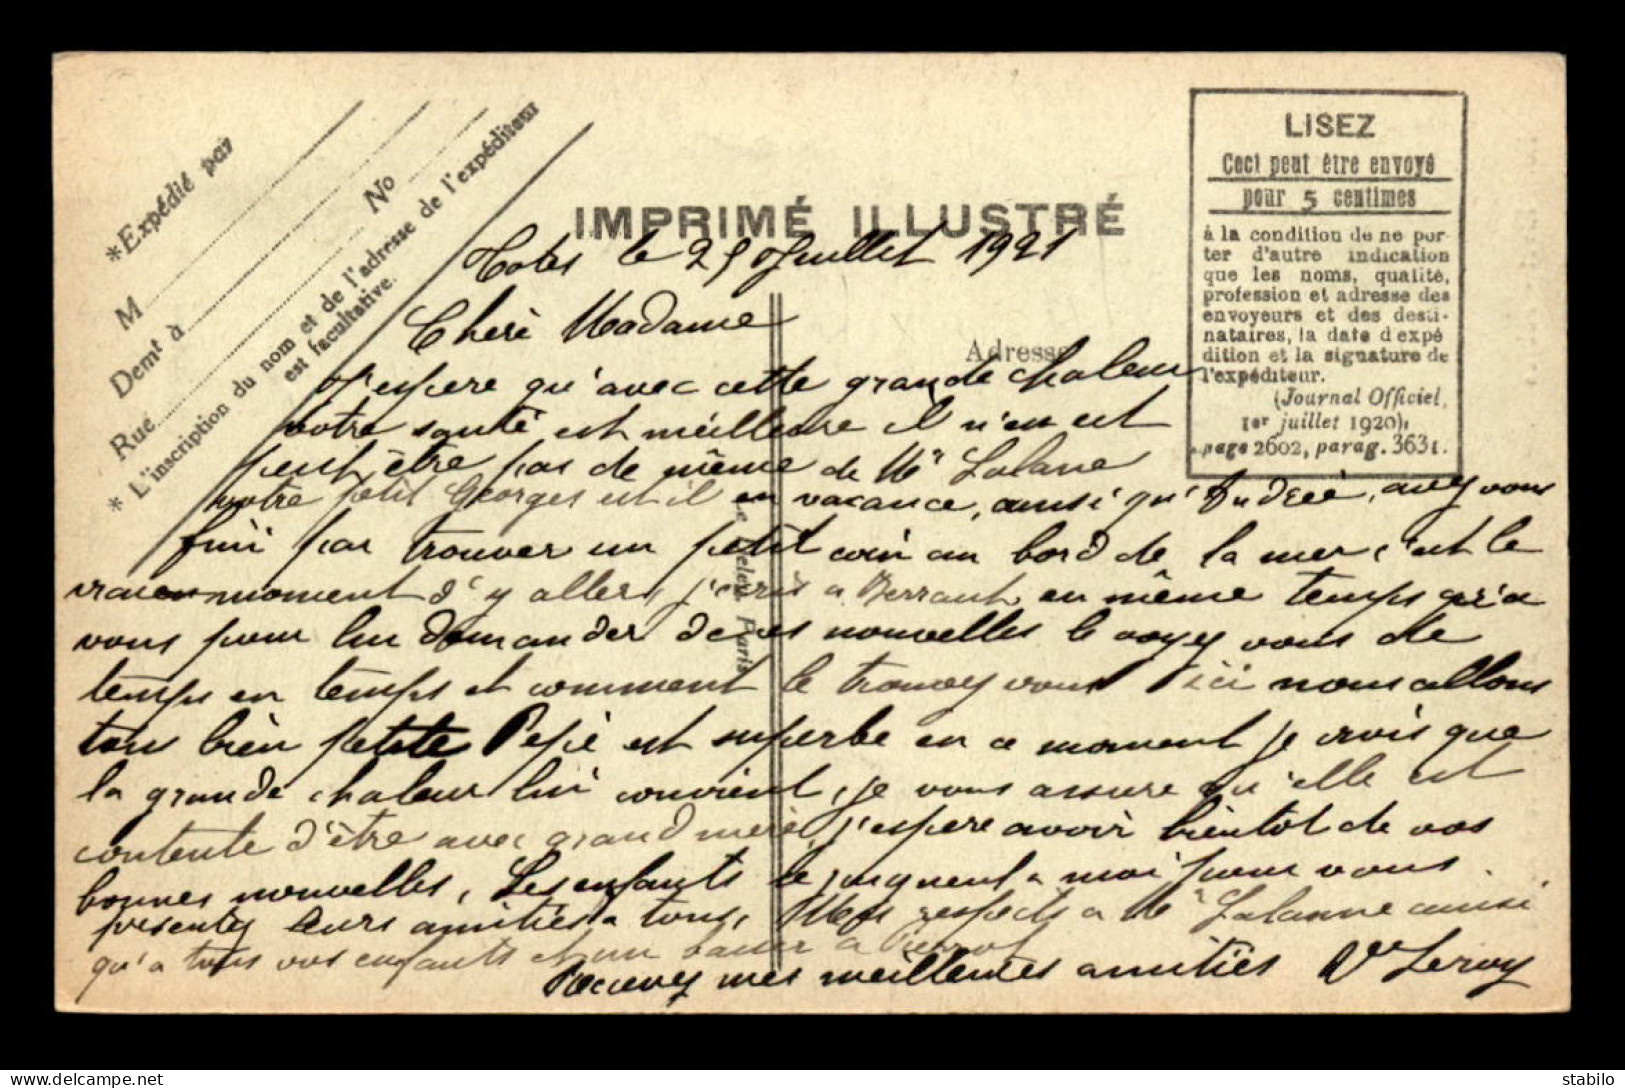 *Expédié par
M
Demt à
Rue
No
* L'inscription du nom et de l'adresse de l'expéditeur
est facultative.
IMPRIMÉ ILLUSTRÉ
Adresse
LISEZ
Ceci peut être envoyé
pour 5 centimes
à la condition de ne por-
ter d'autre indication
que les noms, qualité,
profession et adresse des
envoyeurs et des desti-
nataires, la date d'expé
dition et la signature de
l'expéditeur.
(Journal Officiel,
1er juillet 1920),
page 2602, parag. 3631.
le 25 Juillet 1921
Cheré Madame
J'espere qu'avec cette grande chaleur
votre santé est meilleure il n'en est
peut être pas de même de Mr Lalane
votre petit Georges est il en vacance, ainsi qu'Andreé, avez vous
fini par trouver un petit coin au bord de la mer, c'est le
moment d'y aller, j'écris a en même temps qu'a
vous pour lui demander de ses nouvelles le voyez vous de
temps en temps et comment le trouvez vous ici nous allons
tous bien petite Pepée est superbe en ce moment je crois que
la grande chaleur lui convient, je vous assure qu'elle est
contente d'être avec grand meré, j'espere avoir bientôt de vos
bonnes nouvelles, Les enfants se joignent a moi pour vous
presentez leurs amitiés a tous, Mes respects a Mr Lalanne ainsi
qu'a tous vos enfants et un baiser a Pierrot
Recevez mes meilleures amitiés Ve Leroy
Le Deley, Paris
stabilo